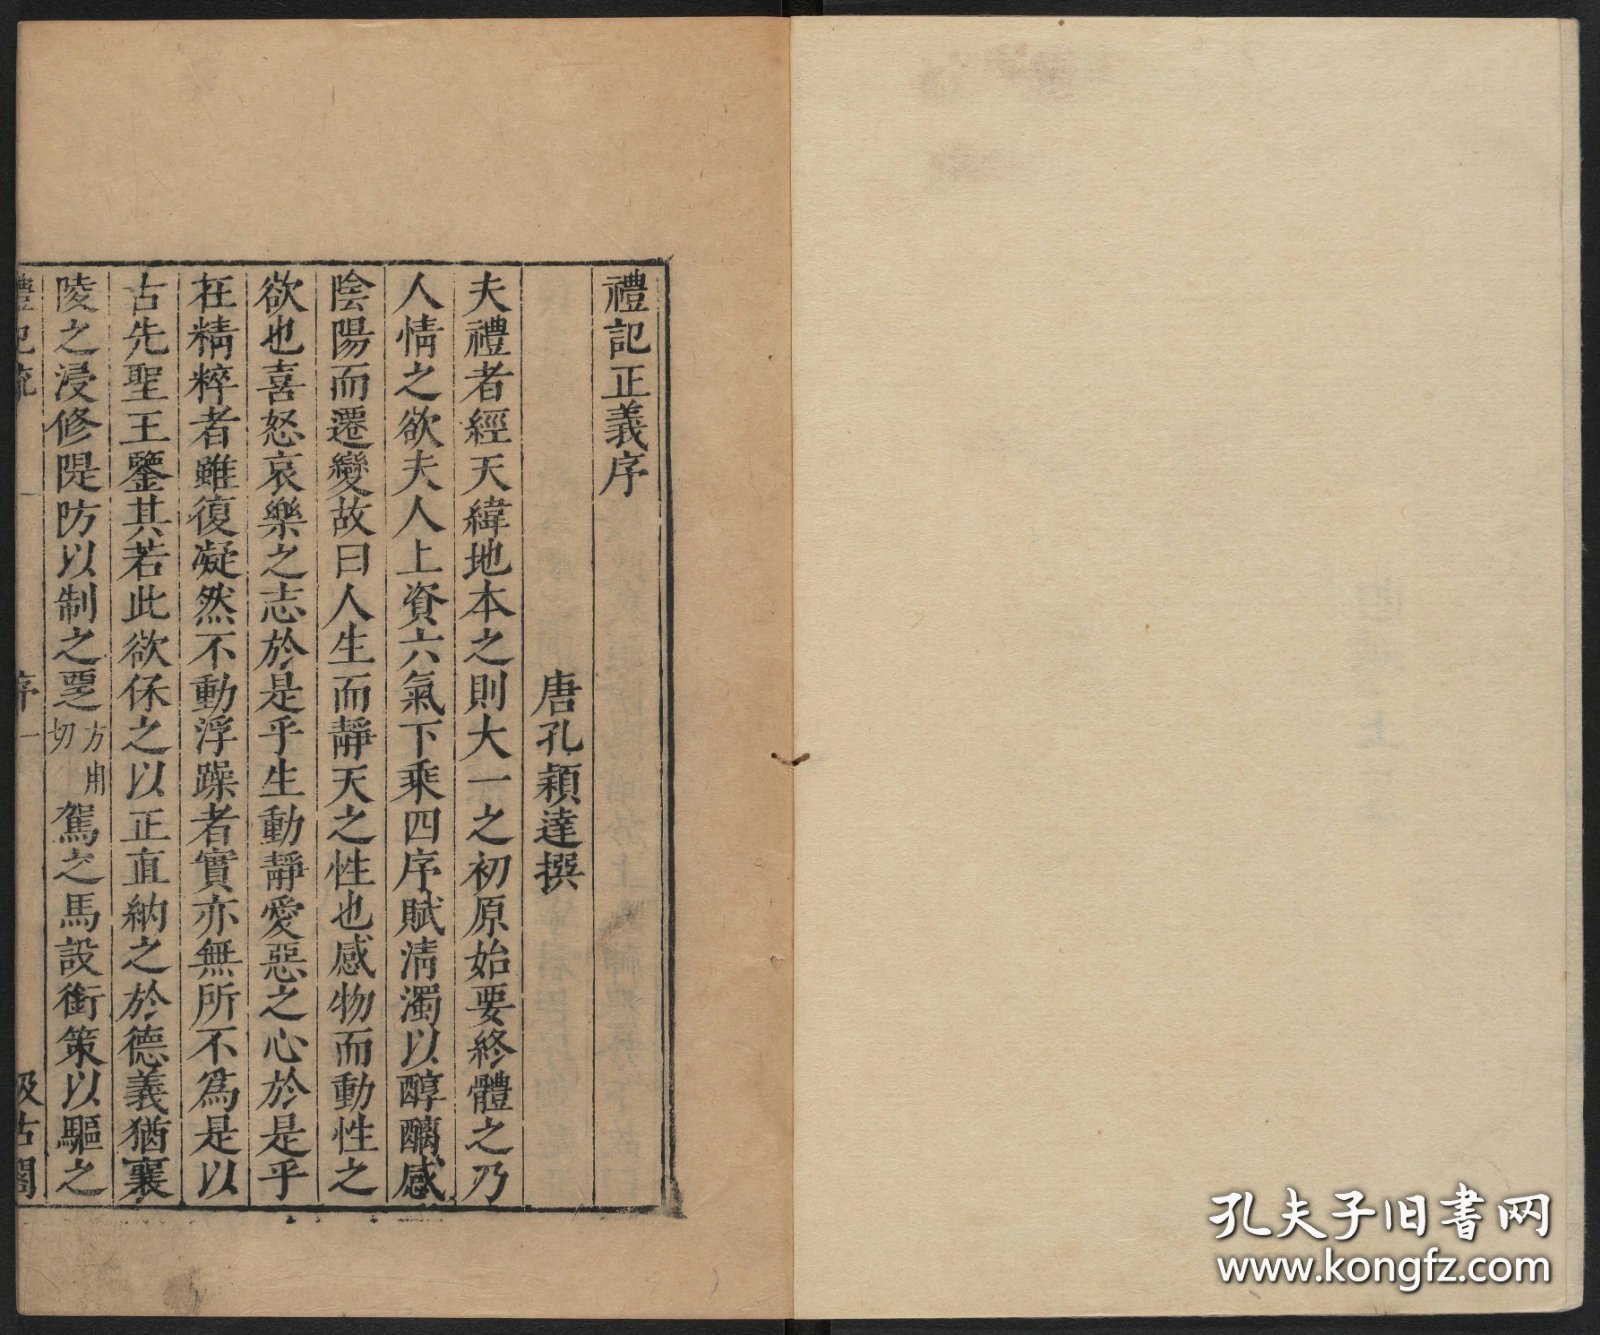 禮記正義序
唐孔穎達撰
夫禮者經天緯地本之則大一之初原始要終體之乃
人情之欲夫人上資六氣下乘四序賦淸濁以醇醨感
陰陽而遷變故曰人生而靜天之性也感物而動性之
欲也喜怒哀樂之志於是乎生動靜愛惡之心於是乎
在精粹者雖復凝然不動浮躁者實亦無所不爲是以
古先聖王鑒其若此欲保之以正直納之於德義猶襄
陵之浸修隄防以制之覂方用切駕之馬設銜策以驅之
禮記疏 序 一 汲古閣
孔夫子旧书网
www.kongfz.com